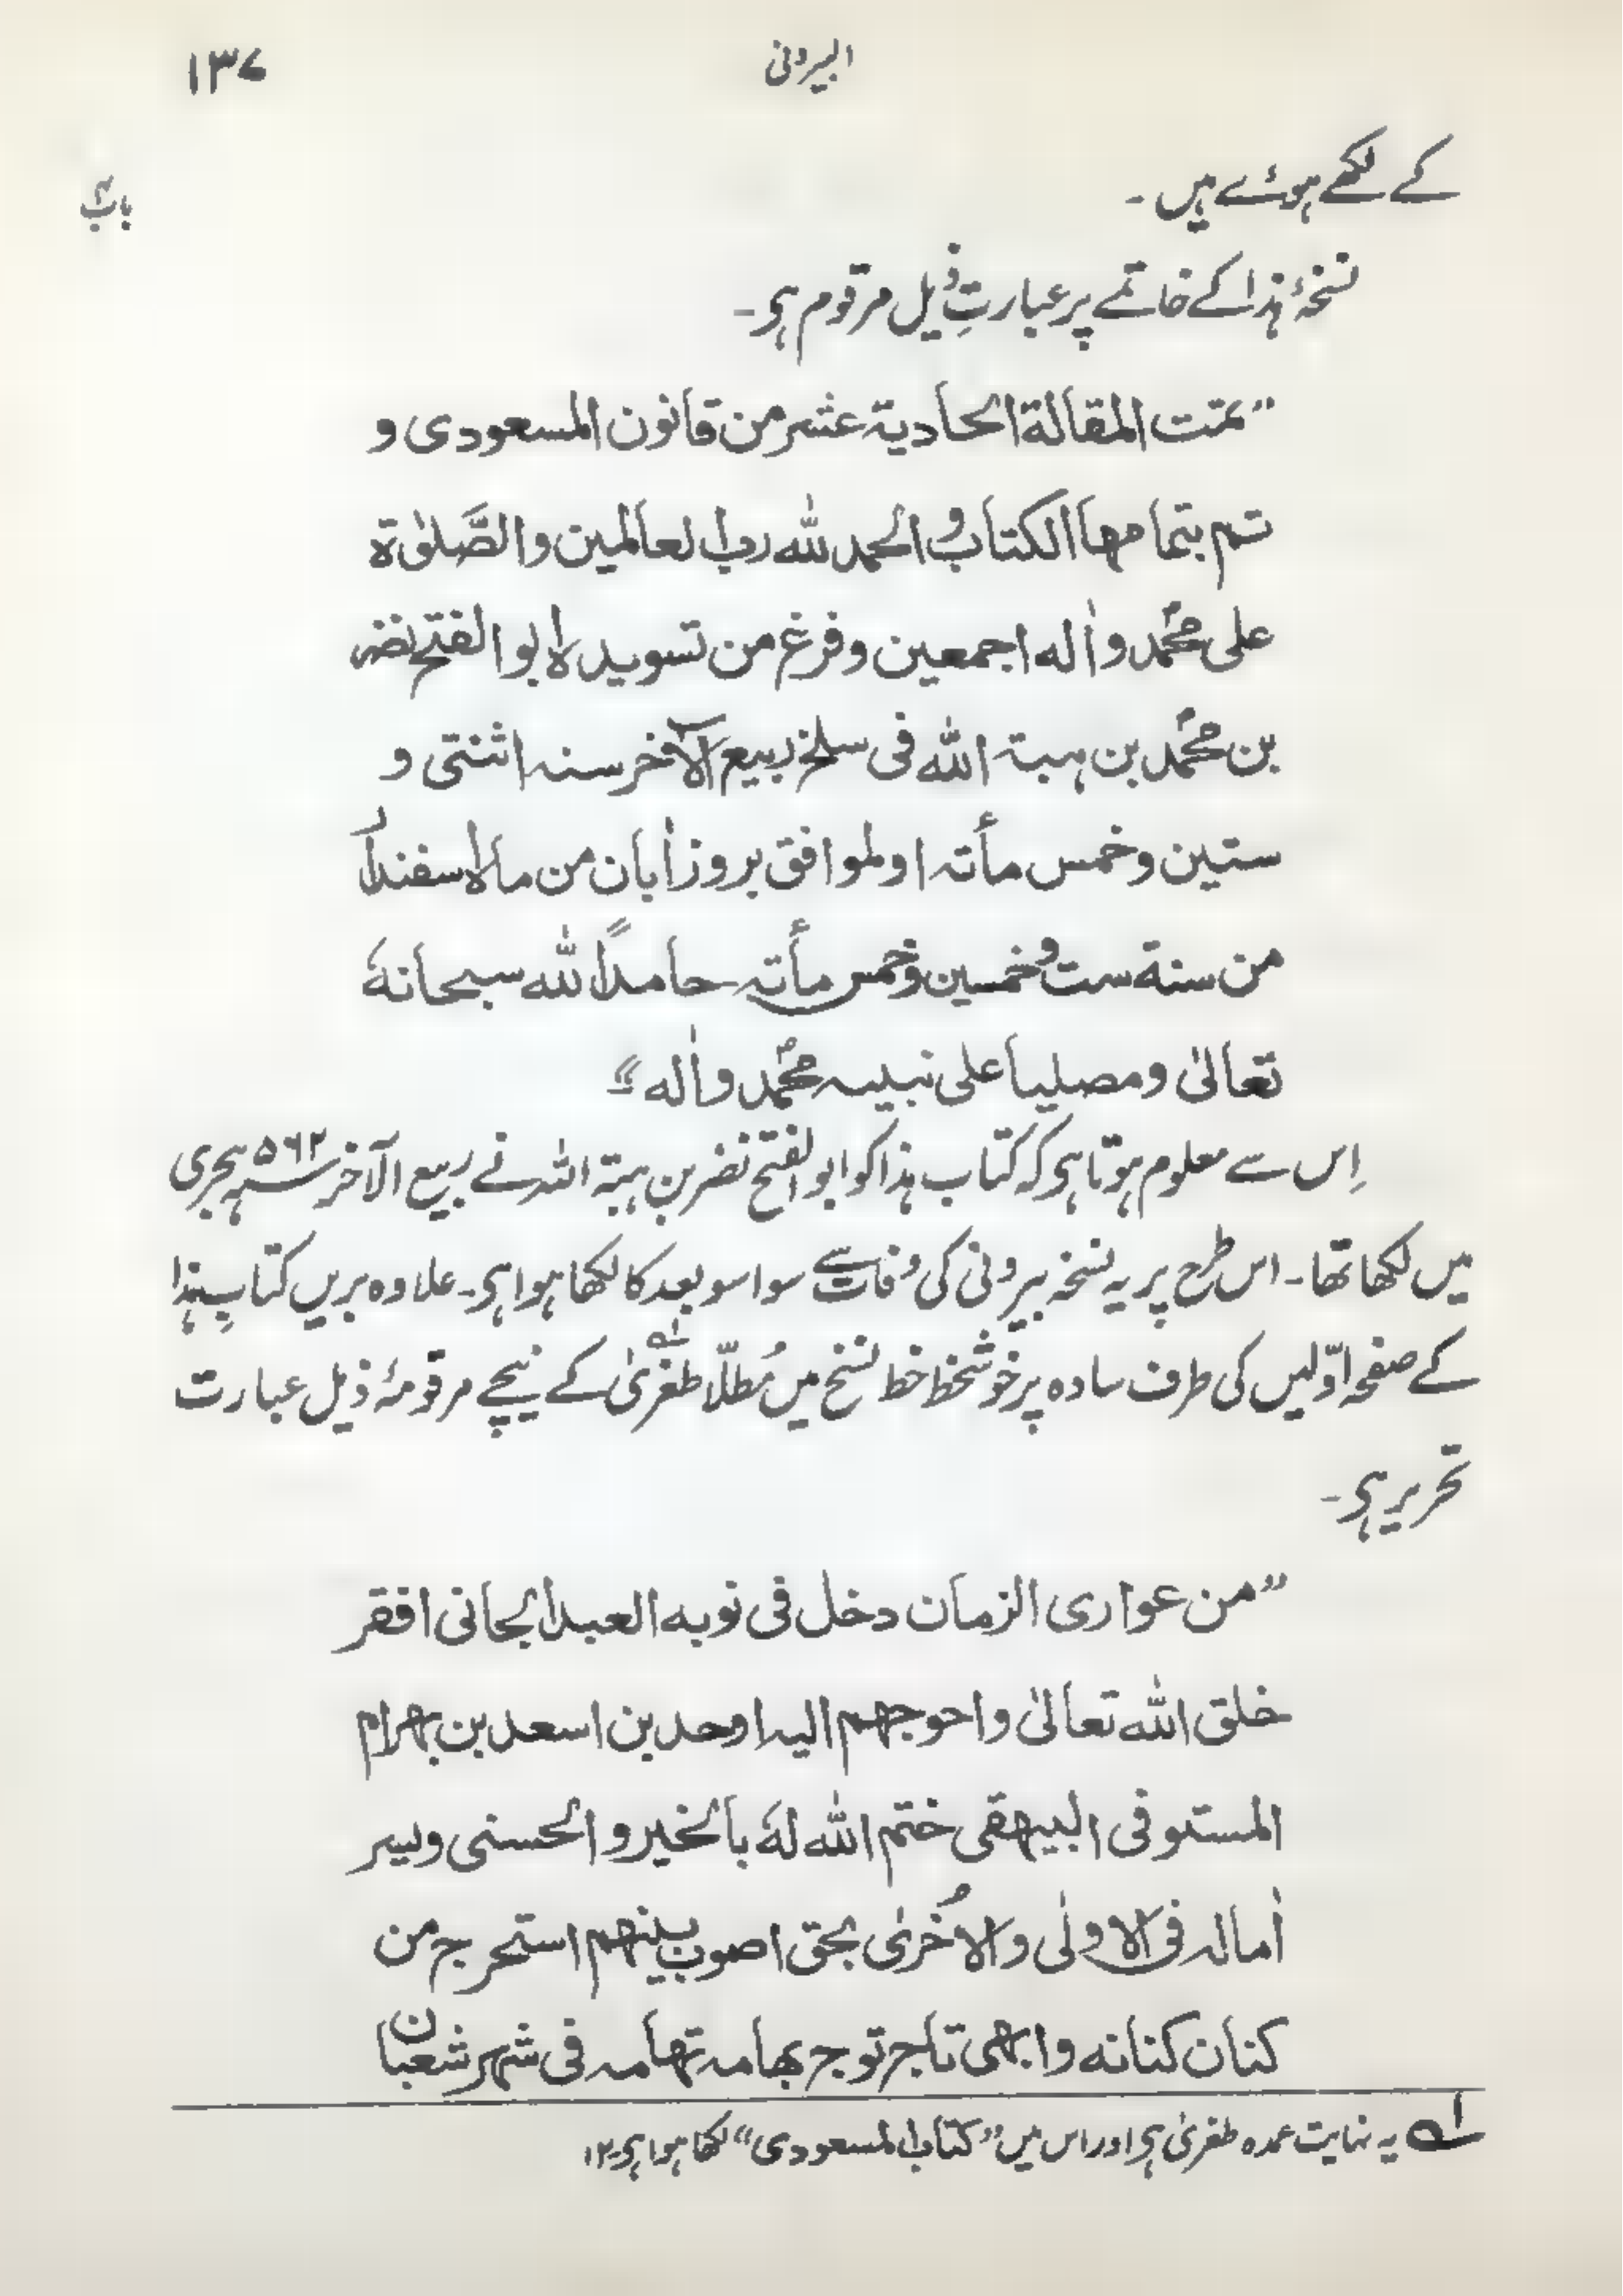 البیرونی
۱۳۷
باب
کے لکھے ہوئے ہیں ۔
نسخۂ ہذا کے خاتمے پر عبارتِ ذیل مرقوم ہی۔
”تمت المقالة الحادیة عشر من قانون المسعودی و
تم بتمامها الکتاب والحمد لله رب العالمین والصَّلوٰة
علی محمد واٰله اجمعین وفرغ من تسویدہ ابوالفتح نضر
بن محمد بن ہبۃ اللہ فی سلخ ربیع الآخر سنہ اثنتی و
ستین وخمس مأتہ اولموافق بروز اٰبان من ماہ اسفندار
من سنة ست وخمسین وخمس مأتہ حامداً للہ سبحانهٗ
تعالیٰ ومصلیا علی نبیہ محمد واٰله“
اِس سے معلوم ہوتا ہی کہ کتاب ہذا کو ابوالفتح نضر بن ہبۃ اللہ نے ربیع الآخر سنہ ۵۶۲ ہجری
میں لکھا تھا۔ اس طرح پر یہ نسخہ بیرونی کی وفات سے سوا سو بعد کا لکھا ہوا ہی۔ علاوہ بریں کتابِ ہذا
کے صفحہ اوّلیں کی طرف سادہ پر خوشخط خط نسخ میں مُطلّا طغریٰ لہ کے نیچے مرقومۂ ذیل عبارت
تحریر ہی۔
”من عواری الزمان دخل فی نوبه العبد الجانی افقر
خلق الله تعالیٰ واحوجهم الیہ اوحد بن اسعد بن بهرام
المستوفی البیهقی ختم الله لهٗ بالخیر والحسنی ویسر
اٰمالہ فی الاولٰی والاُخریٰ بحق اصوب بینهم استحرج من
کنان کنانه وابهی تاجر توج بهامہ تهامہ فی شهر شعبان
لہ یہ نہایت عمدہ طغریٰ ہی اور اس میں ”کتاب المسعودی“ لکھا ہوا ہی ۱۲